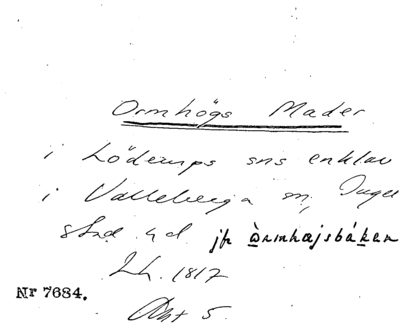 Ormhögs Mader
i Löderups sns enklav
i Valleberga sn, Inge
stad hd. jfr òrmhæjsbáken
Lh. 1817
Nr 7684.
Akt 5.